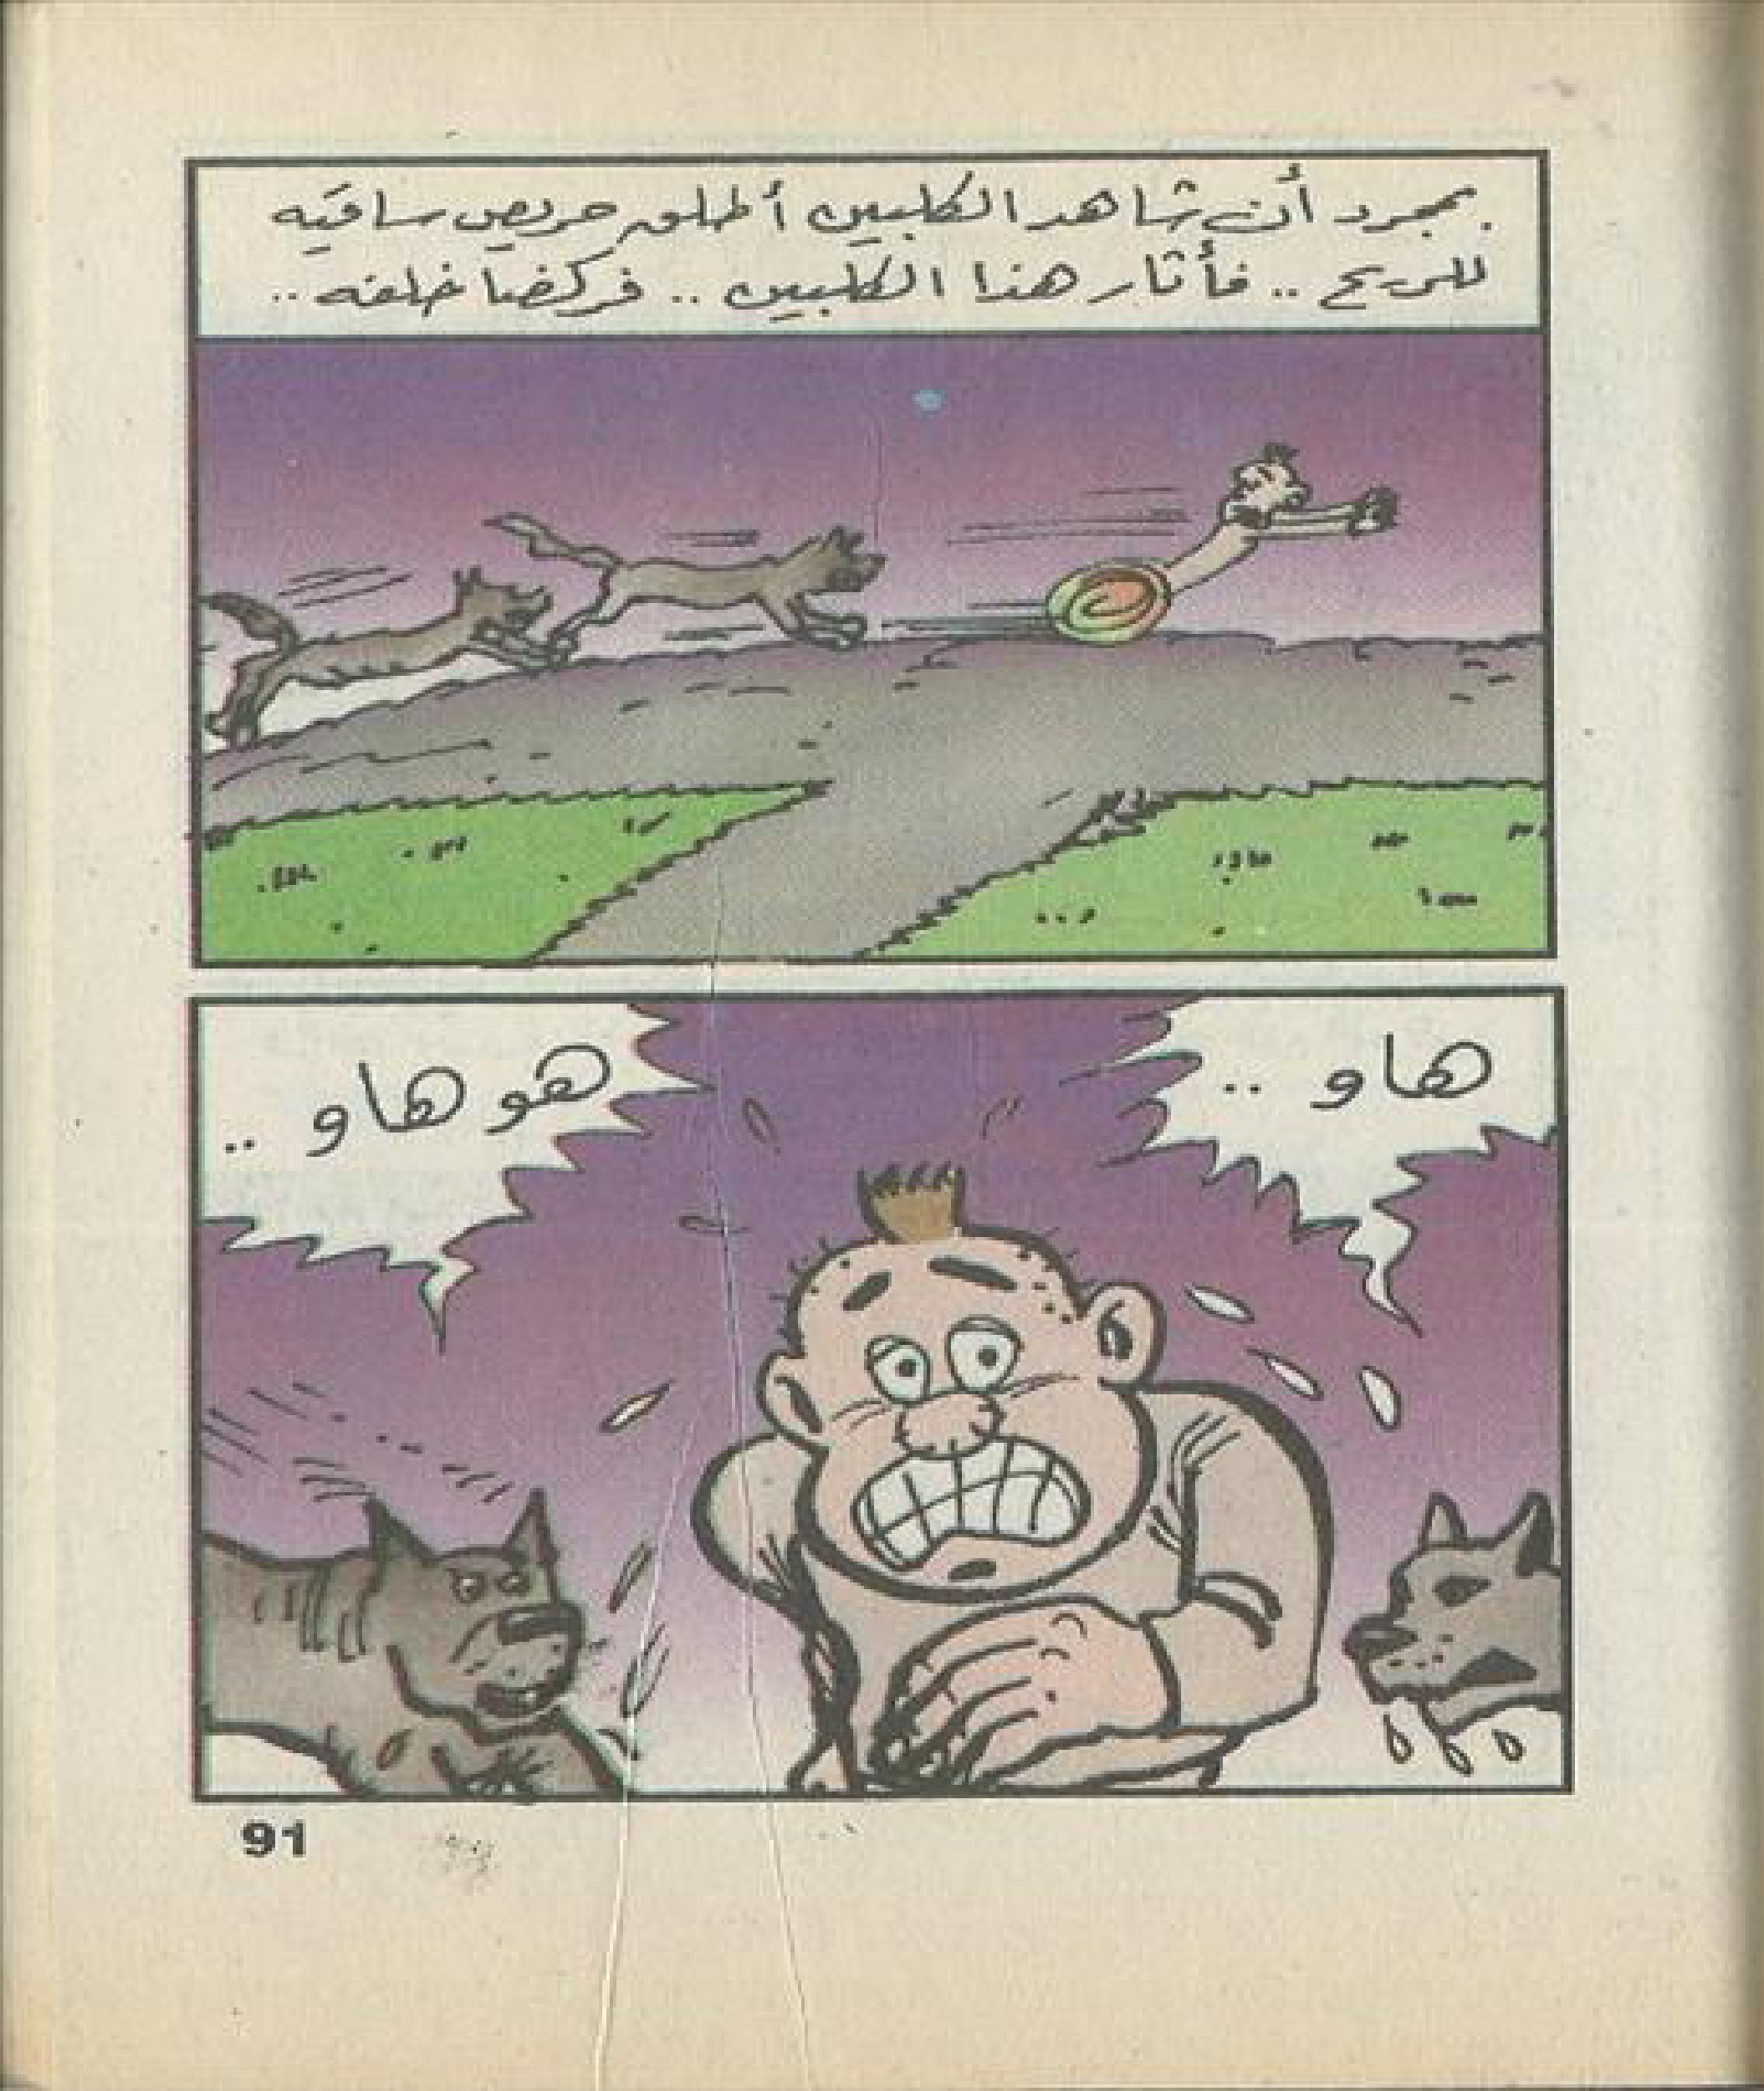 بمجرد أن شاهد الكلبين أطلق حريص ساقيه
للريح .. فأثار هذا الكلبين .. فركضا خلفه ..
هاو ..
هو هاو ..
91